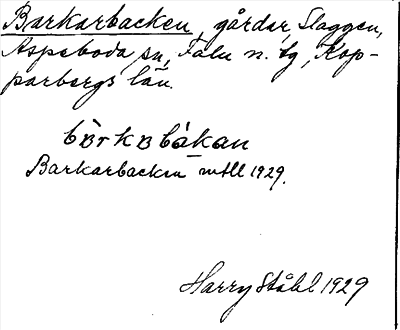 Barkarbacken, gårdar, Slaggen,
Aspeboda sn, Falu n. tg, Kop-
parbergs län.
bàrkabákan
Barkarbacken mtll 1929.
Harry Ståhl 1929